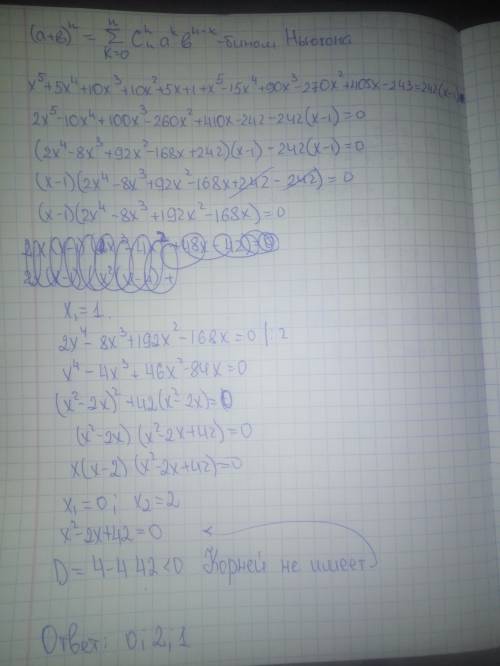 (a+b)ⁿ = Σ(k=0, n) Cₙᵏ aᵏ bⁿ⁻ᵏ - бином Ньютона
x⁵+5x⁴+10x³+10x²+5x+1+x⁵-15x⁴+90x³-270x²+405x-243=242(x-1)
2x⁵-10x⁴+100x³-260x²+410x-242-242(x-1)=0
(2x⁴-8x³+92x²-168x+242)(x-1)-242(x-1)=0
(x-1)(2x⁴-8x³+92x²-168x+242-242)=0
(x-1)(2x⁴-8x³+192x²-168x)=0
x₁=1.
2x⁴-8x³+192x²-168x=0 |:2
x⁴-4x³+46x²-84x=0
(x²-2x)²+42(x²-2x)=0
(x²-2x)(x²-2x+42)=0
x(x-2)(x²-2x+42)=0
x₁=0; x₂=2
x²-2x+42=0
D=4-4·42<0 Корней не имеет
Ответ: 0; 2; 1